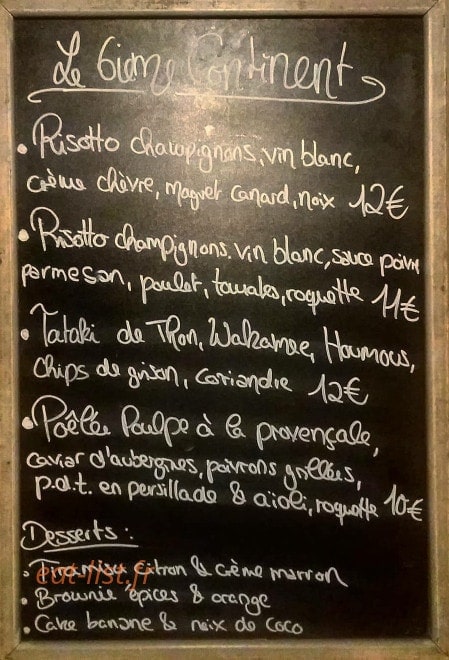 Le 6ième Continent
• Risotto champignons, vin blanc,
crème chèvre, magret canard, noix 12€
• Risotto champignons. vin blanc, sauce poivre
parmesan, poulet, tomates, roquette 11€
• Tataki de Thon, Wakamee, Houmous,
chips de grison, coriandre 12€
• Poêlée Poulpe à la provençale,
caviar d'aubergnes, poivrons grillées,
p.d.t. en persillade & aïoli, roquette 10€
Desserts :
• Tiramisu citron & crème marron
eat-list.fr
• Brownie épices & orange
• Cake banane & noix de coco